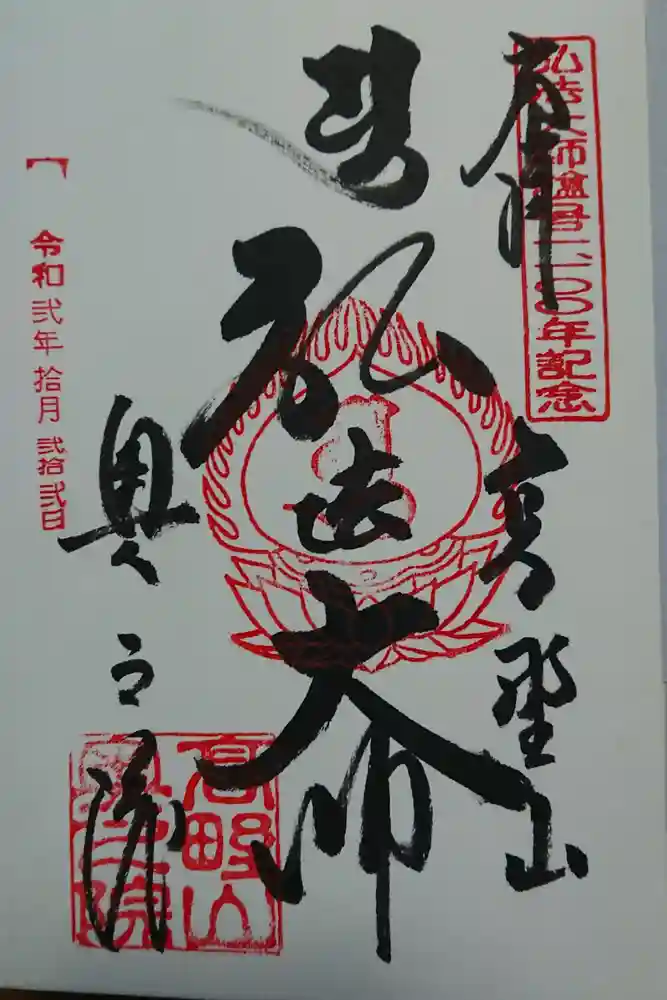 弘法大師壇君一二〇〇年記念
奉拝
高野山
弘法大師
奥之院
令和弐年拾月弐拾弐日
高野山
奥之院